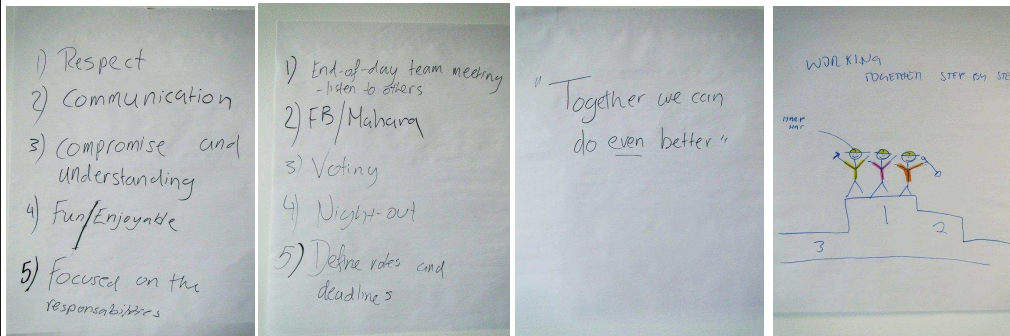 1) Respect
2) Communication
3) Compromise and
understanding
4) Fun/Enjoyable
5) Focused on the
responsibilities
1) End-of-day team meeting
- listen to others
2) FB/Mahara
3) Voting
4) Night-out
5) Define roles and
deadlines
"Together we can
do even better"
WORKING
TOGETHER STEP BY STE
HARD
HAT
1
2
3